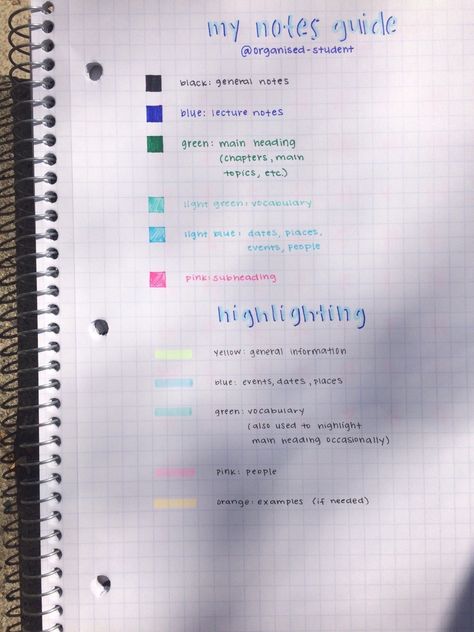 my notes guide
@organised-student
black: general notes
blue: lecture notes
green: main heading
(chapters, main
topics, etc.)
light green: vocabulary
light blue: dates, places,
events, people
pink: subheading
highlighting
yellow: general information
blue: events, dates, places
green: vocabulary
(also used to highlight
main heading occasionally)
pink: people
orange: examples (if needed)